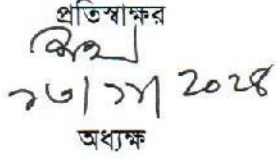 প্রতিস্বাক্ষর
১৩/১১/2024
অধ্যক্ষ